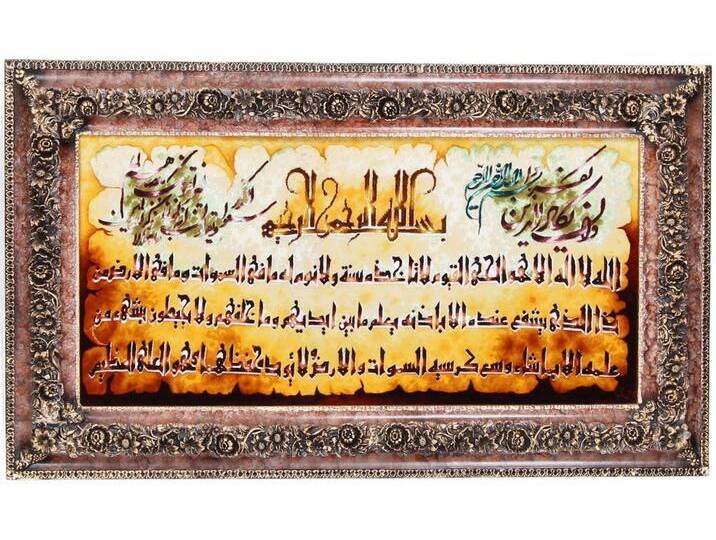 بسم الله الرحمن الرحيم
وان يكاد الذين
الله لا اله الا هو الحى القيوم لا تاخذه سنة ولا نوم له ما فى السموات وما فى الارض من
ذا الذى يشفع عنده الا باذنه يعلم ما بين ايديهم وما خلفهم ولا يحيطون بشىء من
علمه الا بما شاء وسع كرسيه السموات والارض ولا يؤده حفظهما وهو العلى العظيم